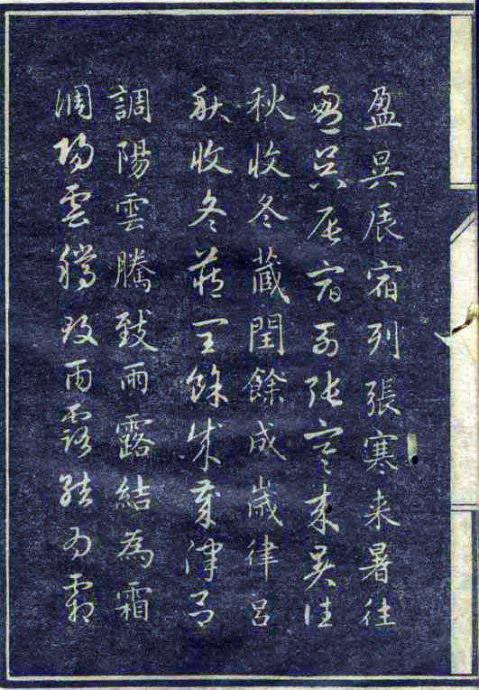 盈昃辰宿列張寒来暑往
盈昃辰宿列张寒来暑往
秋收冬蔵閏餘成歳律呂
秋收冬藏闰餘成歲律吕
調陽雲騰致雨露結為霜
調陽雲騰致雨露結為霜